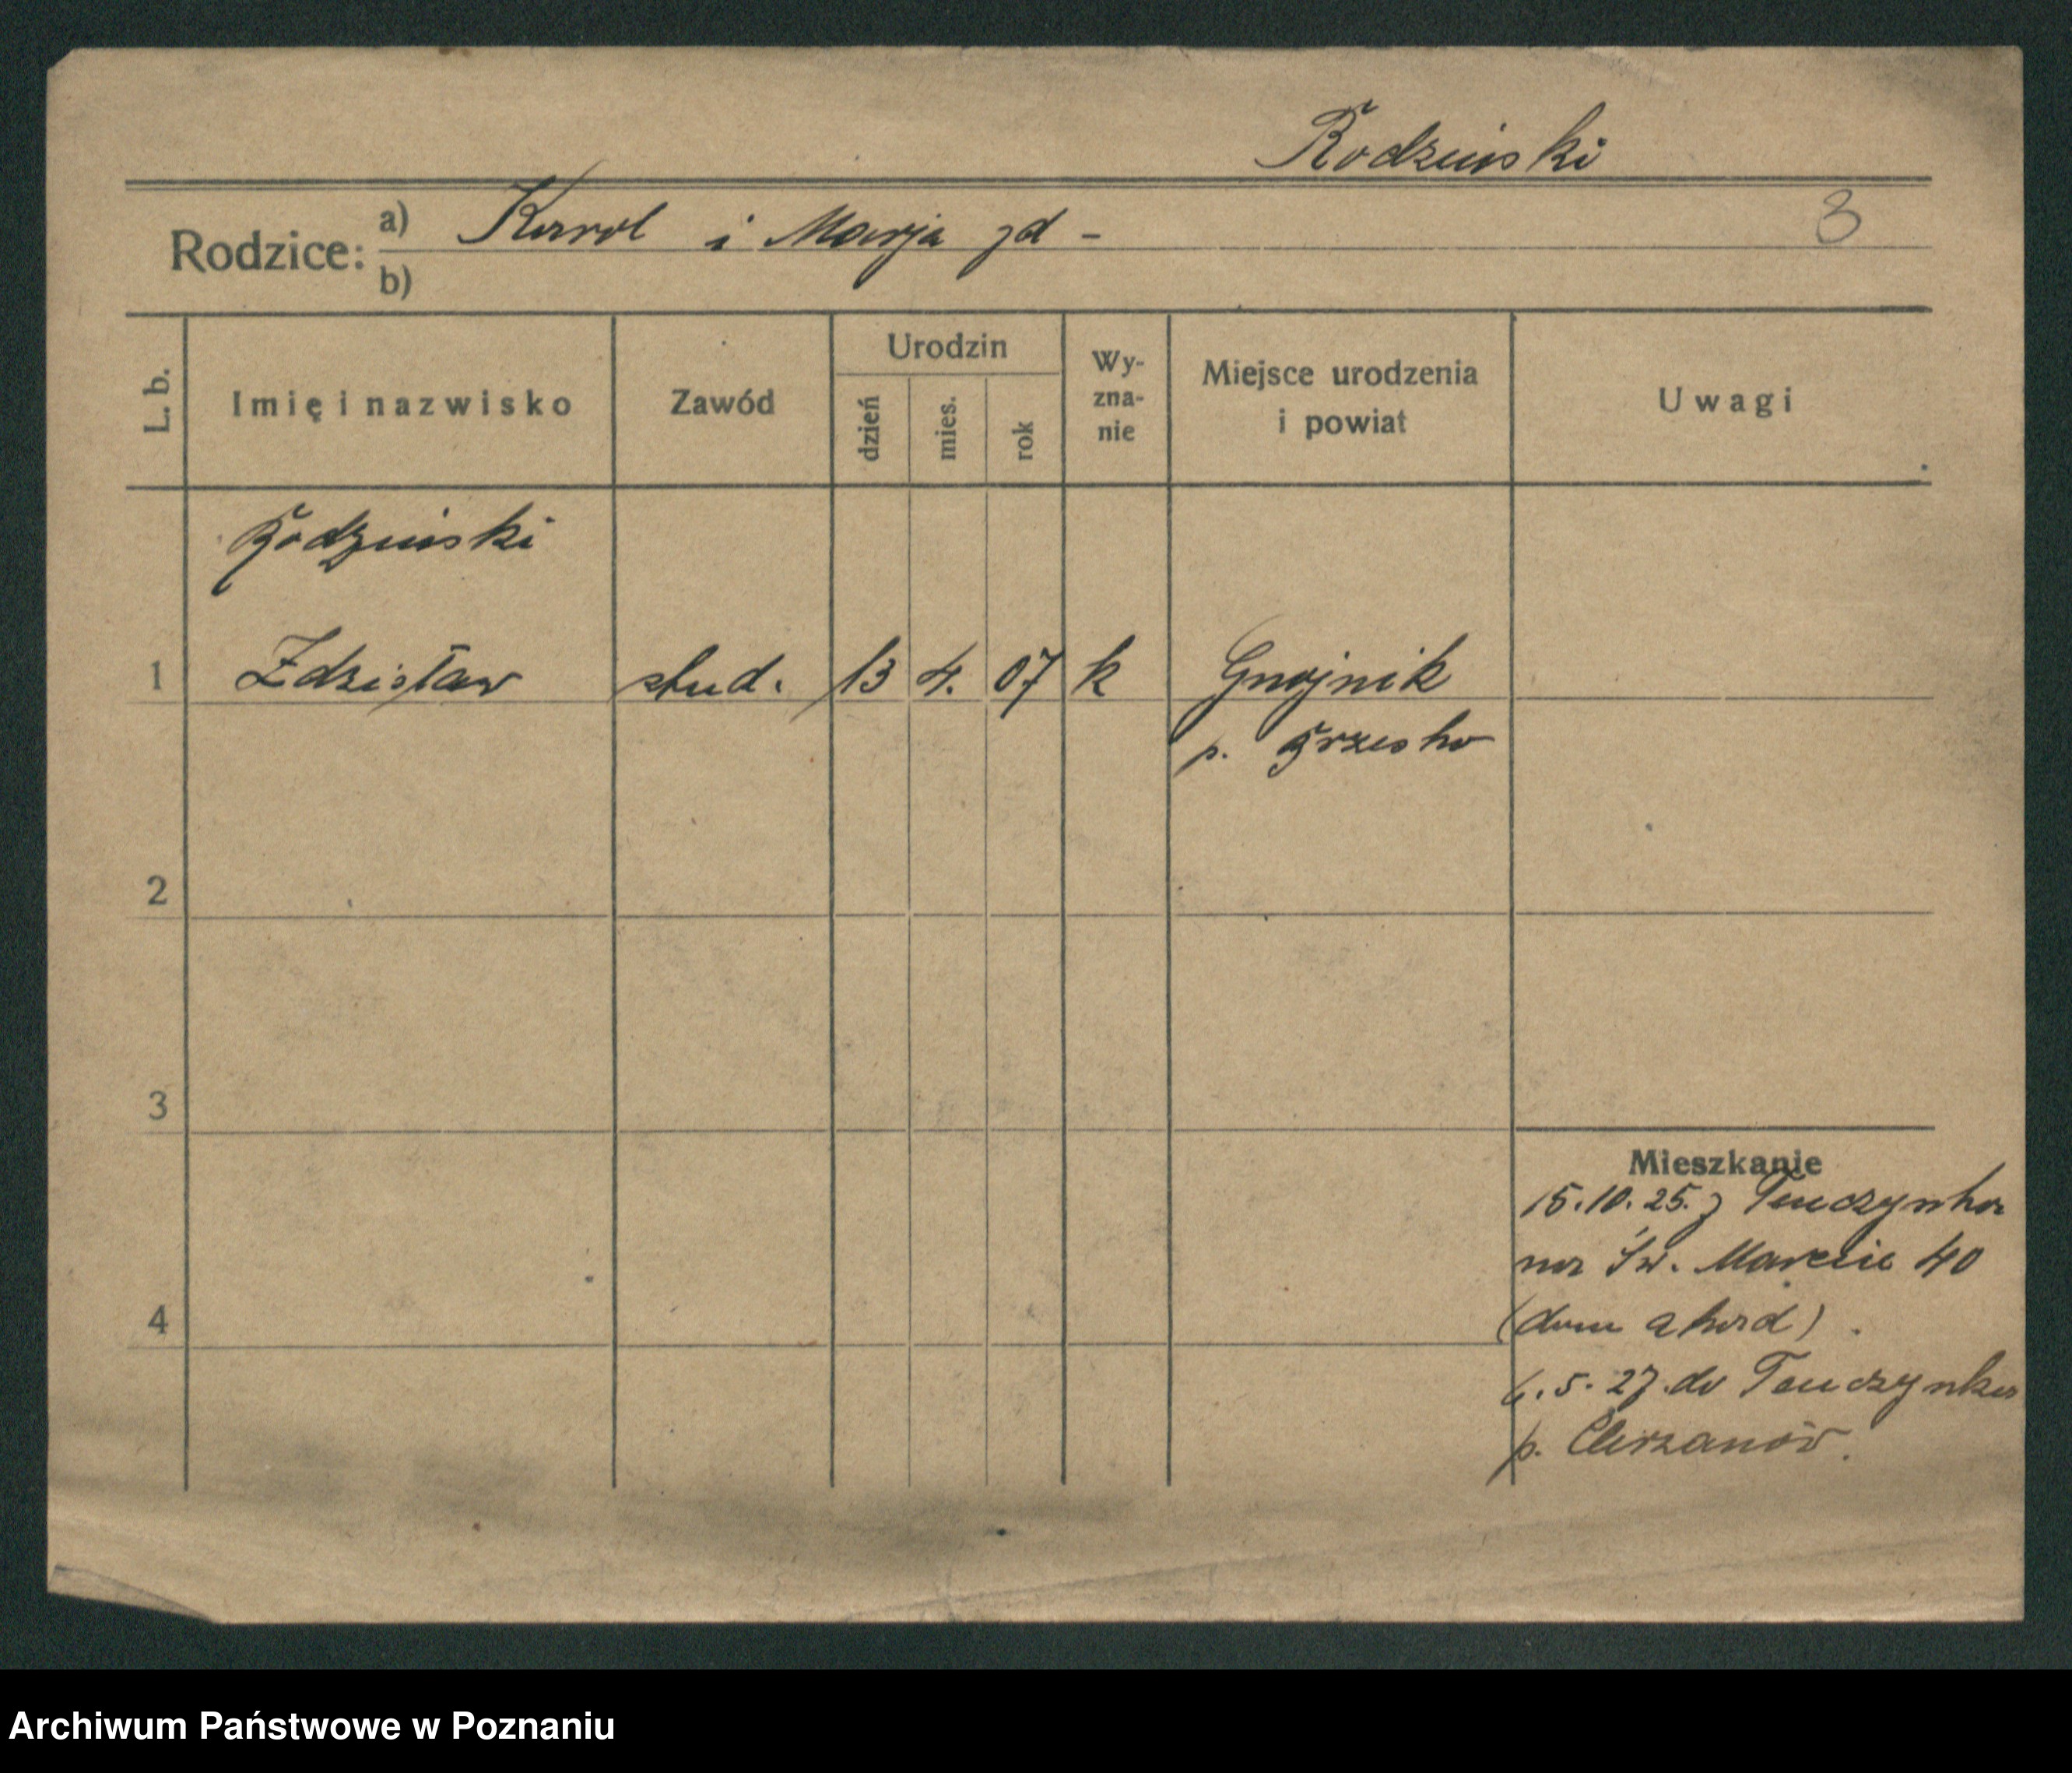 Rodziński
Rodzice: a) Karol i Marja zd -
3
b)
L. b.
Imię i nazwisko
Zawód
Urodzin
dzień
mies.
rok
Wy-
zna-
nie
Miejsce urodzenia
i powiat
Uwagi
Rodziński
1 Zdzisław stud. 13 4. 07 k Gnojnik
p. Brzesko
2
3
Mieszkanie
15.10.25. z Tenczynka
na Św. Marcin 40
(dom akad)
4
6.5.27. do Tenczynka
p. Chrzanów.
Archiwum Państwowe w Poznaniu